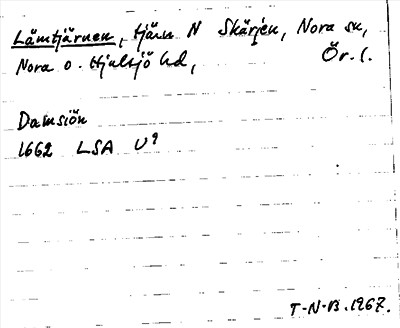 Låmtjärnen, tjärn N Skärjen, Nora sn,
Nora o. Hjulsjö hd, Ör. l.
Damsiön
1662 LSA U⁹
T-N-B. 1967.